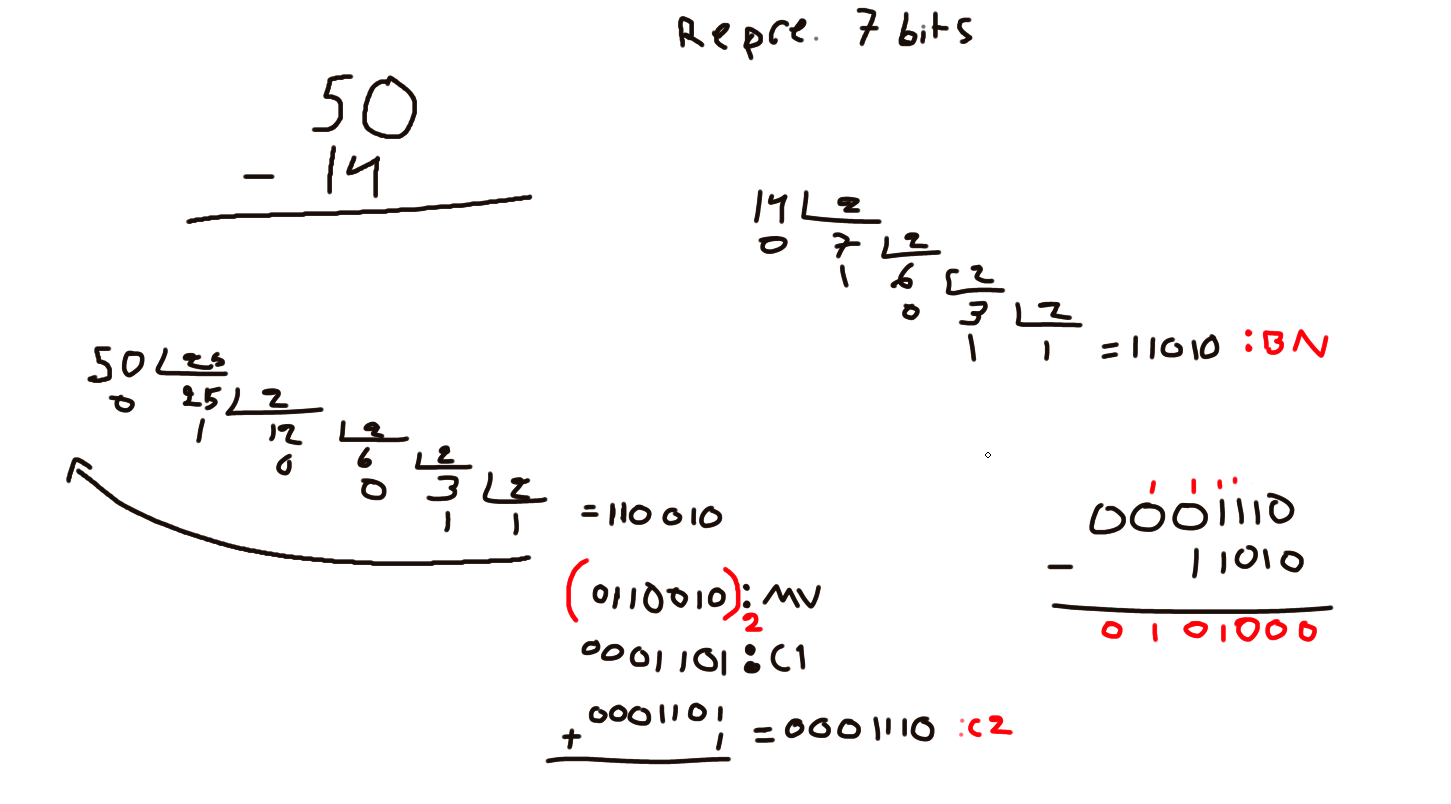 Repre. 7 bits
50
- 14
14 2
0 7 2
1 6 2
0 3 2
1 1 = 11010 : BN
50 25
0 25 2
1 12 2
0 6 2
0 3 2
1 1 = 110010
(0110010)2 : MV
0001101 : C1
0001101
+ 1 = 0001110 : C2
1 1 1 1
0001110
- 11010
0101000